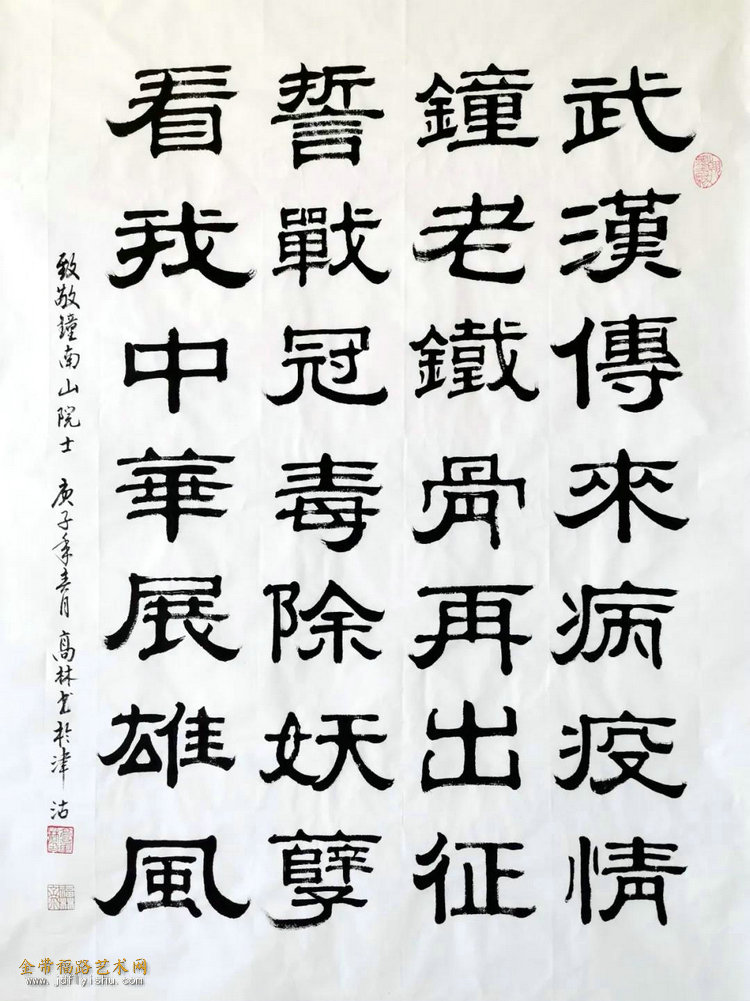 武漢傳來病疫情
鐘老鐵骨再出征
誓戰冠毒除妖孽
看我中華展雄風
致敬鐘南山院士 庚子年春月高林书於津沽
金带福路艺术网
www.jdflyishu.com